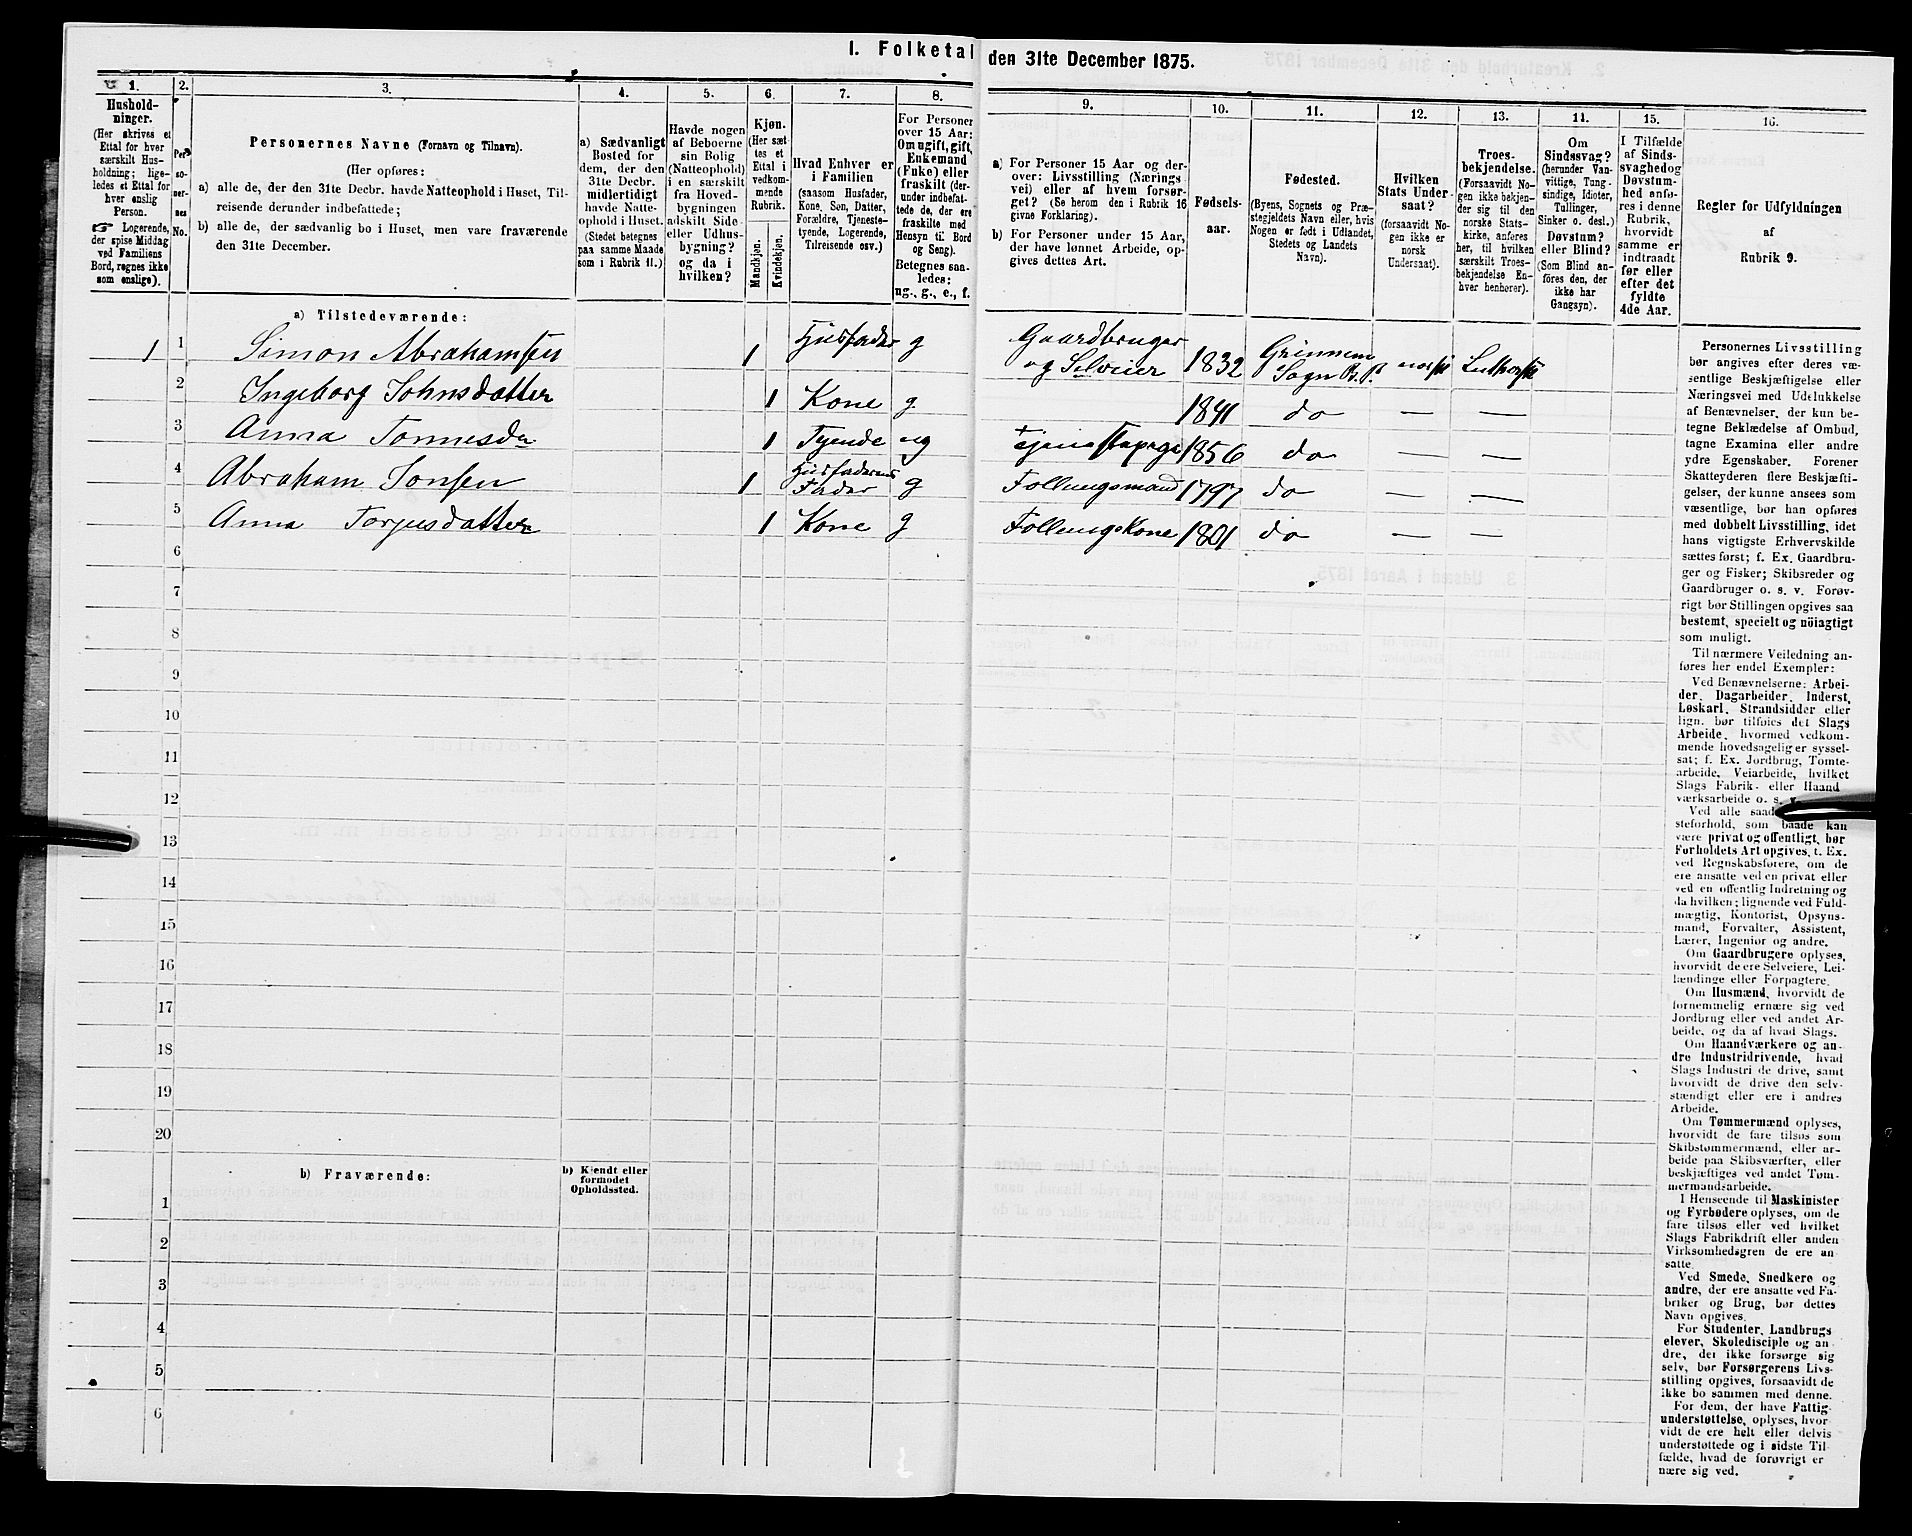 I. Folketal den 31te December 1875.
1.
Hushold-
ninger.
(Her skrives et
Ettal for hver
særskilt Hus-
holdning; lige-
ledes et Ettal for
hver enslig
Person.
☞ Logerende,
der spise Middag
ved Familiens
Bord, regnes ikke
som enslige).
2.
Per-
so-
ner-
nes
No.
3.
Personernes Navne (Fornavn og Tilnavn).
(Her opføres:
a) alle de, der den 31te Decbr. havde Natteophold i Huset, Til-
reisende derunder indbefattede;
b) alle de, der sædvanlig bo i Huset, men vare fraværende
den 31te December.
4.
a) Sædvanligt
Bosted for
dem, der den
31te Decbr.
midlertidigt
havde Natte-
ophold i Huset.
(Stedet betegnes
paa samme Maade
som i Rubrik 11.)
5.
Havde nogen
af Beboerne
sin Bolig
(Natteophold)
i en særskilt
fra Hoved-
bygningen
adskilt Side-
eller Udhus-
bygning?
og da i
hvilken?
6.
Kjøn.
(Her sæt-
tes et
Ettal i
vedkom-
mende
Rubrik.
Mandkjøn.
Kvindekjøn.
7.
Hvad Enhver er
i Familien
(saasom Husfader,
Kone, Søn, Datter,
Forældre, Tjeneste-
tyende, Logerende,
Tilreisende osv.)
8.
For Personer
over 15 Aar:
Om ugift, gift,
Enkemand
(Enke) eller
fraskilt (der-
under indbefat-
tede de, der ere
fraskilte med
Hensyn til Bord
og Seng).
Betegnes saa-
ledes:
ug., g., e., f.
9.
a) For Personer 15 Aar og der-
over: Livsstilling (Nærings-
vei) eller af hvem forsør-
get? (Se herom den i Rubrik 16
givne Forklaring).
b) For Personer under 15 Aar,
der have lønnet Arbeide, op-
gives dettes Art.
10.
Fødsels-
aar.
11.
Fødested.
(Byens, Sognets og Præ-
stegjeldets Navn eller, hvis
Nogen er født i Udlandet,
Stedets og Landets
Navn).
12.
Hvilken
Stats Under-
saat?
(forsaavidt No-
gen ikke er
norsk
Undersaat).
13.
Troes-
bekjendelse.
(Forsaavidt No-
gen ikke bekjen-
der sig til den
norske Stats-
kirke, anføres
her, til hvilken
særskilt Troes-
bekjendelse En-
hver henhører).
14.
Om
Sindssvag?
(herunder Van-
vittige, Tung-
sindige, Idioter,
Tullinger,
Sinker o. desl.)
Døvstum?
eller Blind?
(Som Blind an-
føres den, der
ikke har
Gangsyn).
15.
I Tilfælde
af Sinds-
svaghed og
Døvstum-
hed anfø-
res i denne
Rubrik,
hvorvidt
samme er
indtraadt
før eller
efter det
fyldte
4de Aar.
16.
Regler for Udfyldningen
af
Rubrik 9.
a) Tilstedeværende:
1 1 Simon Abrahamsen 1 Husfader g Gaardbruger og Selveier 1832 Grinnem Sogn B.P. norsk Luthersk
2 Ingeborg Johnsdatter 1 Kone g. 1841 do — —
3 Anna Tønnesdr 1 Tyende ug Tjenestepige 1856 do — —
4 Abraham Jonsen 1 Husfaderens Fader g Follungsmand 1797 do — —
5 Anna Torjusdatter 1 Kone g Follungskone 1801 do — —
6
7
8
9
10
11
12
13
14
15
16
17
18
19
20
b) Fraværende:
b) Kjendt eller
formodet
Opholdssted.
1
2
3
4
5
6
Personernes Livsstilling
bør angives efter deres væ-
sentlige Beskjæftigelse eller
Næringsvei med Udelukkelse
af Benævnelser, der kun be-
tegne Beklædelse af Ombud,
tagne Examina eller andre
ydre Egenskaber. Forener
Skatteyderen flere Beskjæfti-
gelser, der kunne ansees som
væsentlige, bør han opføres
med dobbelt Livsstilling, idet
hans vigtigste Erhvervskilde
sættes først; f. Ex. Gaardbru-
ger og Fisker; Skibsreder og
Gaardbruger o. s. v. Forøv-
rigt bør Stillingen opgives saa
bestemt, specielt og nöiagtigt
som muligt.
Til nærmere Veiledning an-
føres her endel Exempler:
Ved Benævnelserne: Arbei-
der, Dagarbeider, Inderst,
Løskarl, Strandsidder eller
lign. bør tilføies det Slags
Arbeide, hvormed vedkom-
mende hovedsagelig er syssel-
sat; f. Ex. Jordbrug, Tomte-
arbeide, Veiarbeide, hvilket
Slags Fabrik- eller Haand-
værksarbeide o. s. v.
Ved alle saad
steforhold, som baade kan
være privat og offentligt, bør
Forholdets Art opgives, t. Ex.
ved Regnskabsførere, om de
ere ansatte ved en privat eller
ved en offentlig Indretning og
da hvilken; lignende ved Fuld-
mægtig, Kontorist, Opsyns-
mand, Forvalter, Assistent,
Lærer, Ingeniør og andre.
Om Gaardbrugere oplyses,
hvorvidt de ere Selveiere, Lei-
lændinge eller Forpagtere.
Om Husmænd, hvorvidt de
fornemmelig ernære sig ved
Jordbrug eller ved andet Ar-
beide, og da af hvad Slags.
Om Haandværkere og an-
dre Industridrivende, hvad
Slags Industri de drive, samt
hvorvidt de drive den selv-
stændigt eller ere i andres
Arbeide.
Om Tømmermænd oplyses,
hvorvidt de fare tilsøs som
Skibstømmermænd, eller ar-
beide paa Skibsværfter, eller
beskjæftiges ved andet Tøm-
mermandsarbeide.
I Henseende til Maskinister
og Fyrbødere oplyses, om de
fare tilsøs eller ved hvilket
Slags Fabrikdrift eller anden
Virksomhedsgren de ere an-
satte.
Ved Smede, Snedkere og
andre, der ere ansatte ved Fa-
briker og Brug, bør dettes
Navn opgives.
For Studenter, Landbrugs-
elever, Skoledisciple og an-
dre, der ikke forsørge sig
selv, bør Forsørgerens Livs-
stilling opgives, forsaavidt de
ikke bo sammen med denne.
For dem, der have Fattig-
understøttelse, oplyses, hvor-
vidt de ere helt eller delvis
understøttede og i sidste Til-
fælde, hvad de forøvrigt er-
nære sig ved.